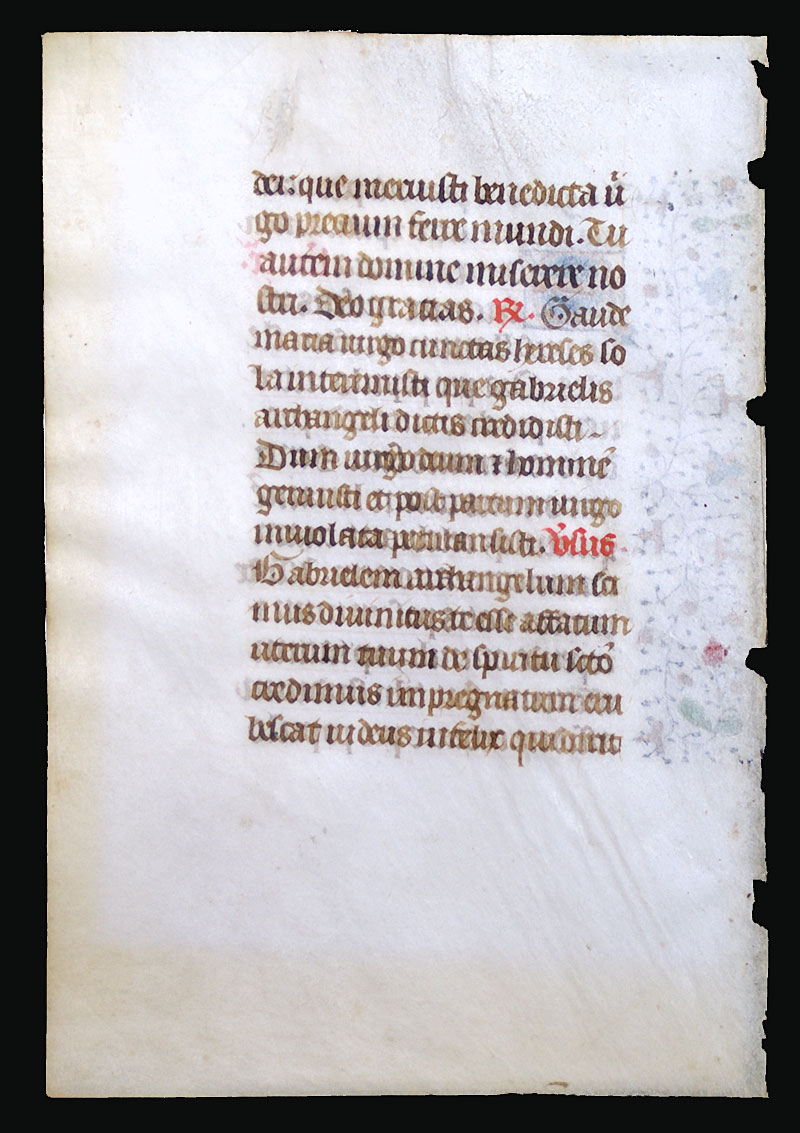 dei: que meruisti benedicta v̄
go precium ferre mundi. Tu
autem domine miserere no
stri. Deo gracias. R̸. Gaude
maria uirgo cunctas hereses so
la interemisti que gabrielis
archangeli dictis credidisti
Dum uirgo deum ⁊ hominē
genuisti et post partum uirgo
inuiolata permansisti. v̄sus.
Gabrielem archangelum sci
mus diuinitus te esse affatum
uterum tuum de spiritu sctō
credimus impregnatum eru
bescat iudeus infelix qui dicit